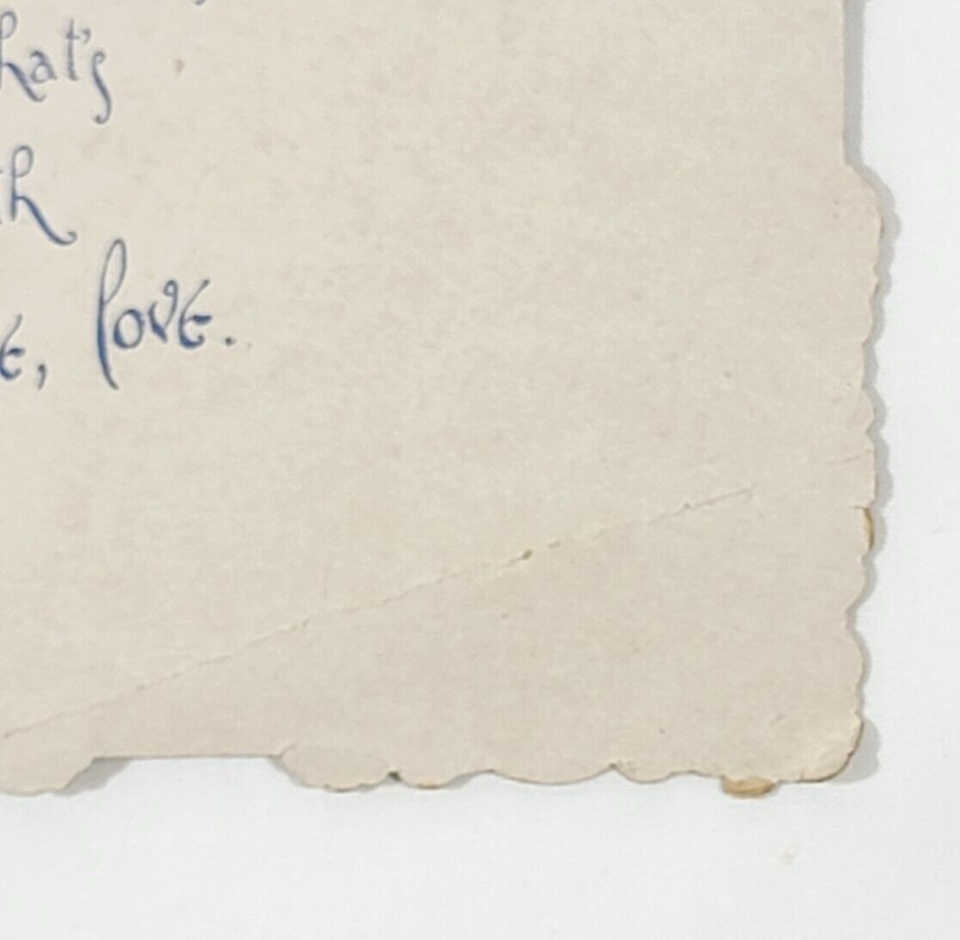 hat's
h
e, love.